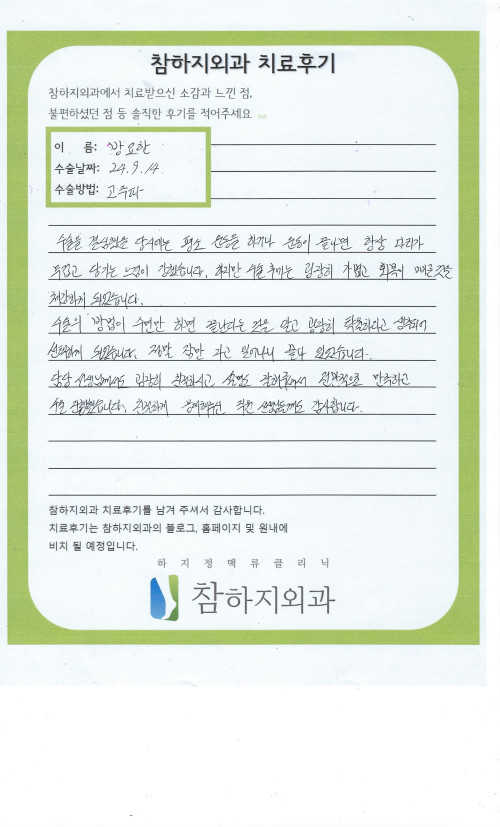 참하지외과 치료후기
참하지외과에서 치료받으신 소감과 느낀 점,
불편하셨던 점 등 솔직한 후기를 적어주세요
이 름: 방요한
수술날짜: 24.9.14
수술방법: 고주파
수술을 결심했을 당시에는 평소 운동을 하거나 운동이 끝나면 항상 다리가
무겁고 당기는 느낌이 강했습니다. 하지만 수술 후에는 굉장히 가볍고 회복이 빠른 것을
체감하게 되었습니다.
수술의 방법이 수면만 하면 끝난다는 것을 알고 굉장히 탁월하다고 생각되어
선택하게 되었습니다. 정말 잠만 자고 일어나니 끝나 있었습니다.
담당 선생님께서도 굉장히 친절하시고 설명도 잘해주셔서 전반적으로 만족하고
수술 잘했습니다. 친절하게 응대해주신 직원 선생님들께도 감사합니다.
참하지외과 치료후기를 남겨 주셔서 감사합니다.
치료후기는 참하지외과의 블로그, 홈페이지 및 원내에
비치 될 예정입니다.
하지정맥류클리닉
참하지외과